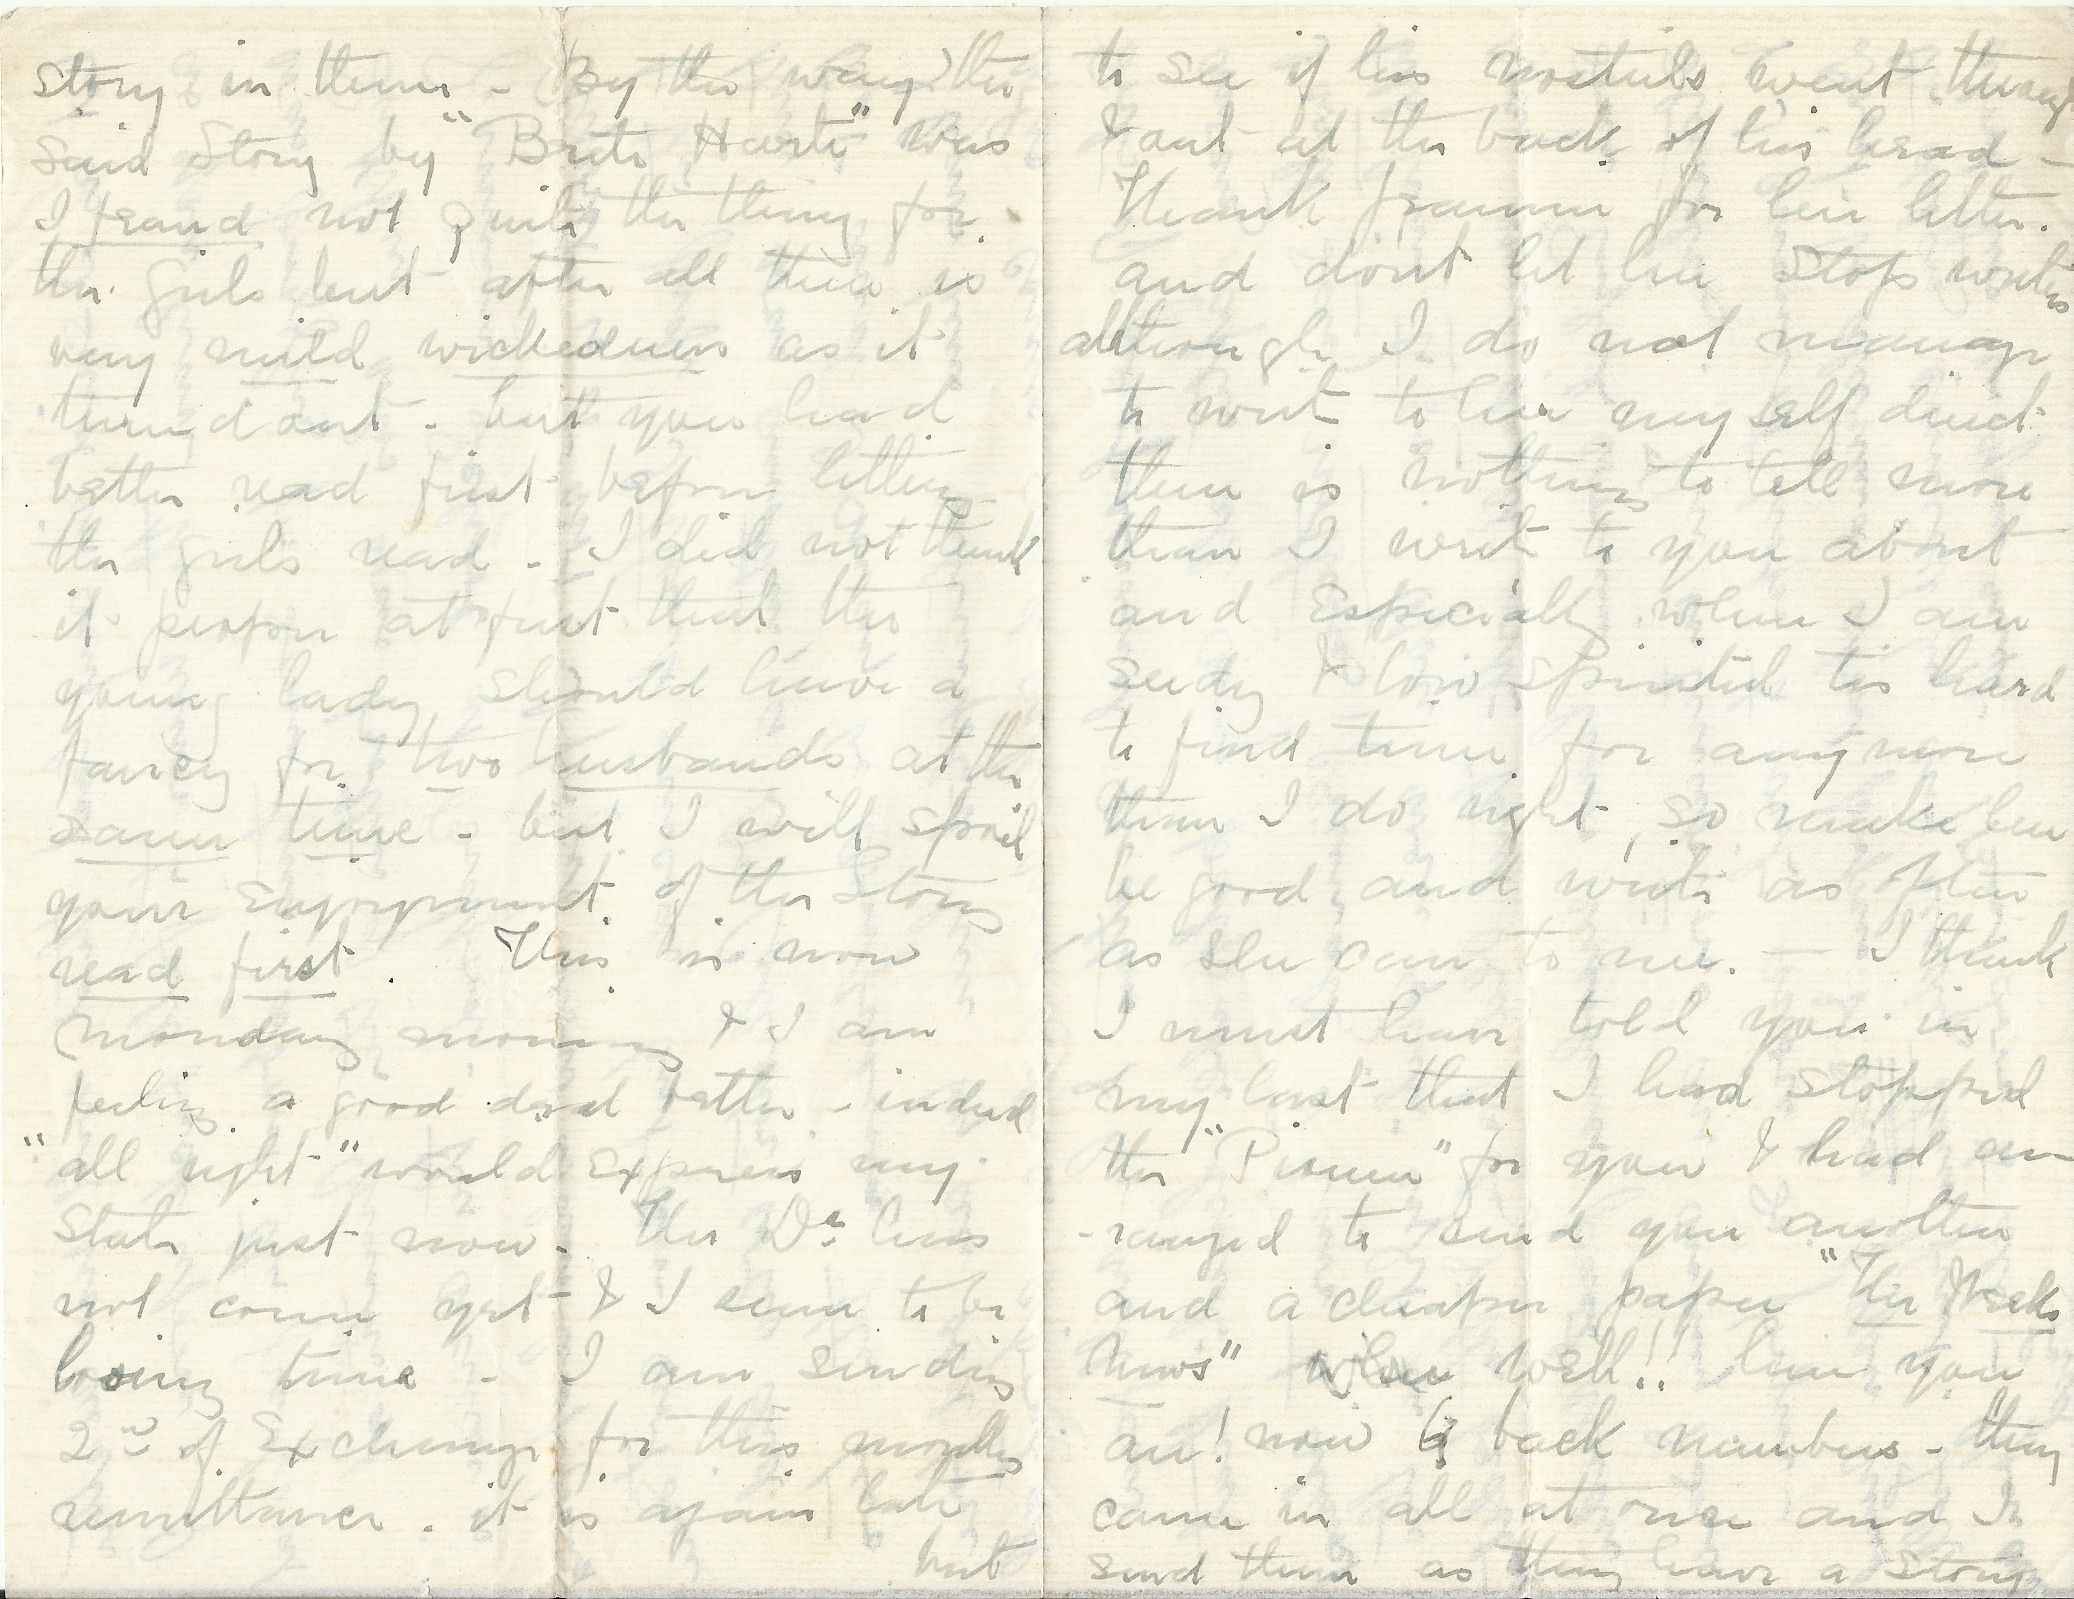 story in them - (By the way) the
said story by "Brete Harte" was
I feard not quite the thing for
the girls but after all there is
very mild wickedness as it
turnd out - but you had
better read first before letting
the girls read - I did not think
it proper at first that the
young lady should have a
fancy for two husbands at the
same time - but I will spoil
your enjoyment of the story
read first. This is now
Monday morning & I am
feeling a good deal better - indeed
"all right" would express my
state just now - The Dr. has
not come yet - & I seem to be
losing time - I am sending
2nd of Exchange for this months
remittance. it is again late
but
to see if his nostrils went through
& out at the back of his head -
Thank for her letter.
and don't let her stop writing
although I do not manage
to write to her myself direct
there is nothing to tell more
than I write to you about
and especially when I am
seedy & low spirited tis hard
to find time for any more
than I do right, so make her
be good and write as often
as she can to me. - I think
I must have told you in
my last that I had stopped
the "Pioneer" for you & had ar-
-ranged to send you another
and a cheaper paper "The Weeks
News" well!! here you
are! now 6 back numbers - they
came in all at once and I
send them as they have a story